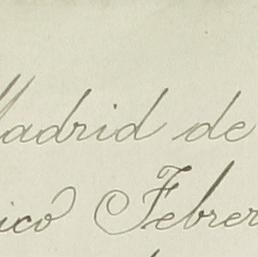 Madrid de
ico Febrer